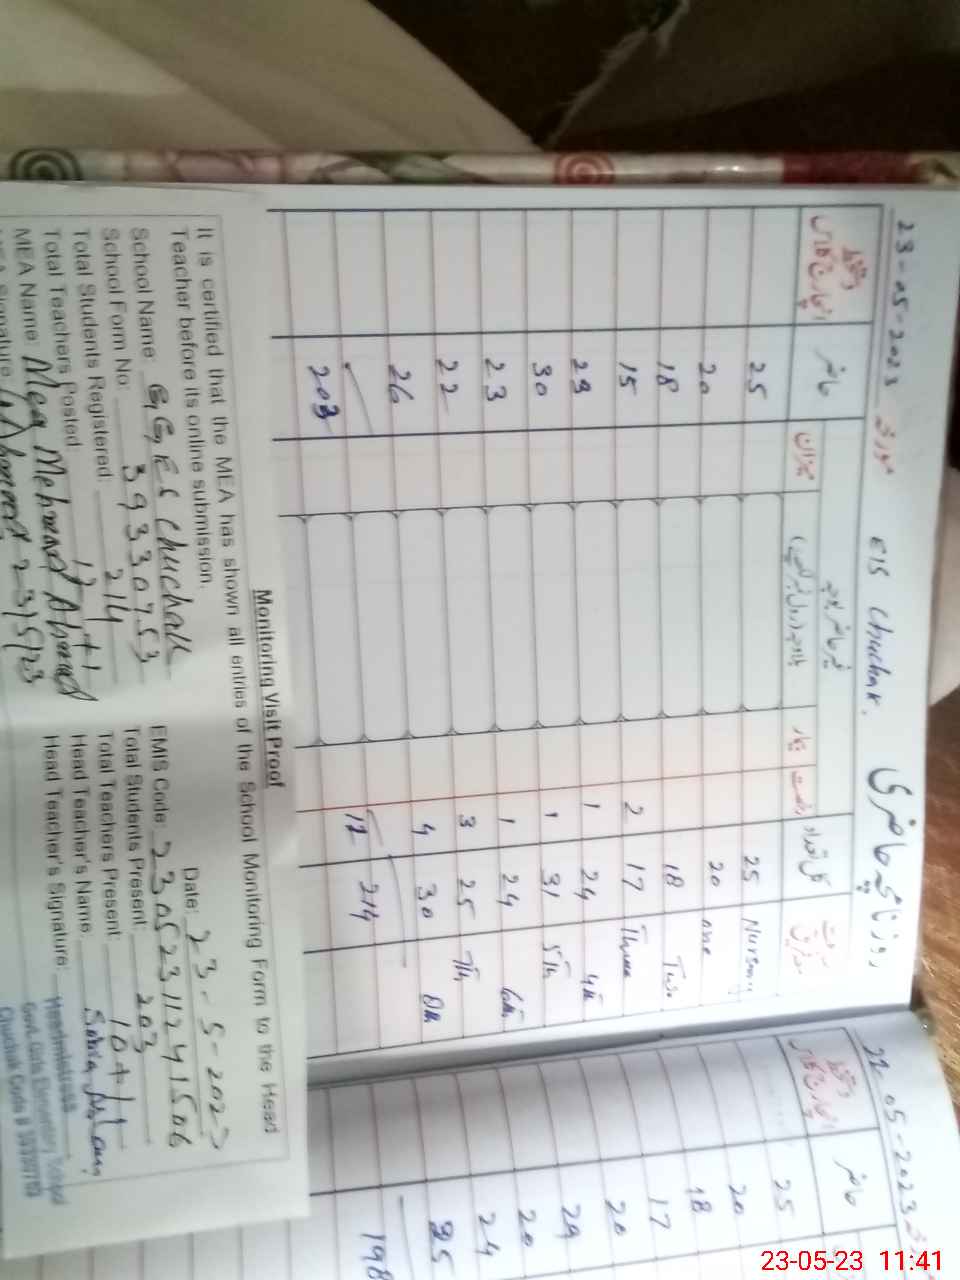 23-05-2023 مورخہ EIS Chuchak. روزنامچہ حاضری
دستخط انچارج کلاس حاضر میزان غیر حاضر بوجہ بیمار رخصت کل تعداد جماعت
بلاوجہ (رول نمبر لکھیں)
25 25 Nursery
20 20 one
18 18 Two
15 2 17 Three
23 1 24 4th
30 1 31 5th
23 1 24 6th
22 3 25 7th
26 4 30 8th
203 12 214
Monitoring Visit Proof
It is certified that the MEA has shown all entries of the School Monitoring Form to the Head
Teacher before its online submission.
Date: 23-5-2023
School Name: GGES Chuchak EMIS Code: 23052311241506
School Form No: 39330753 Total Students Present: 203
Total Students Registered: 214 Total Teachers Present: 10+1
Total Teachers Posted: 12+1 Head Teacher's Name: Sobia Aslam
MEA Name: Mea Mehmood Ahmad Head Teacher's Signature:
MEA Signature: Ahmad 23/5/23
Headmistress
Govt. Girls Elementary School
Chuchak Code # 39330753
22-05-2023
دستخط انچارج کلاس حاضر
25
20
18
17
20
29
20
24
25
198
23-05-23 11:41